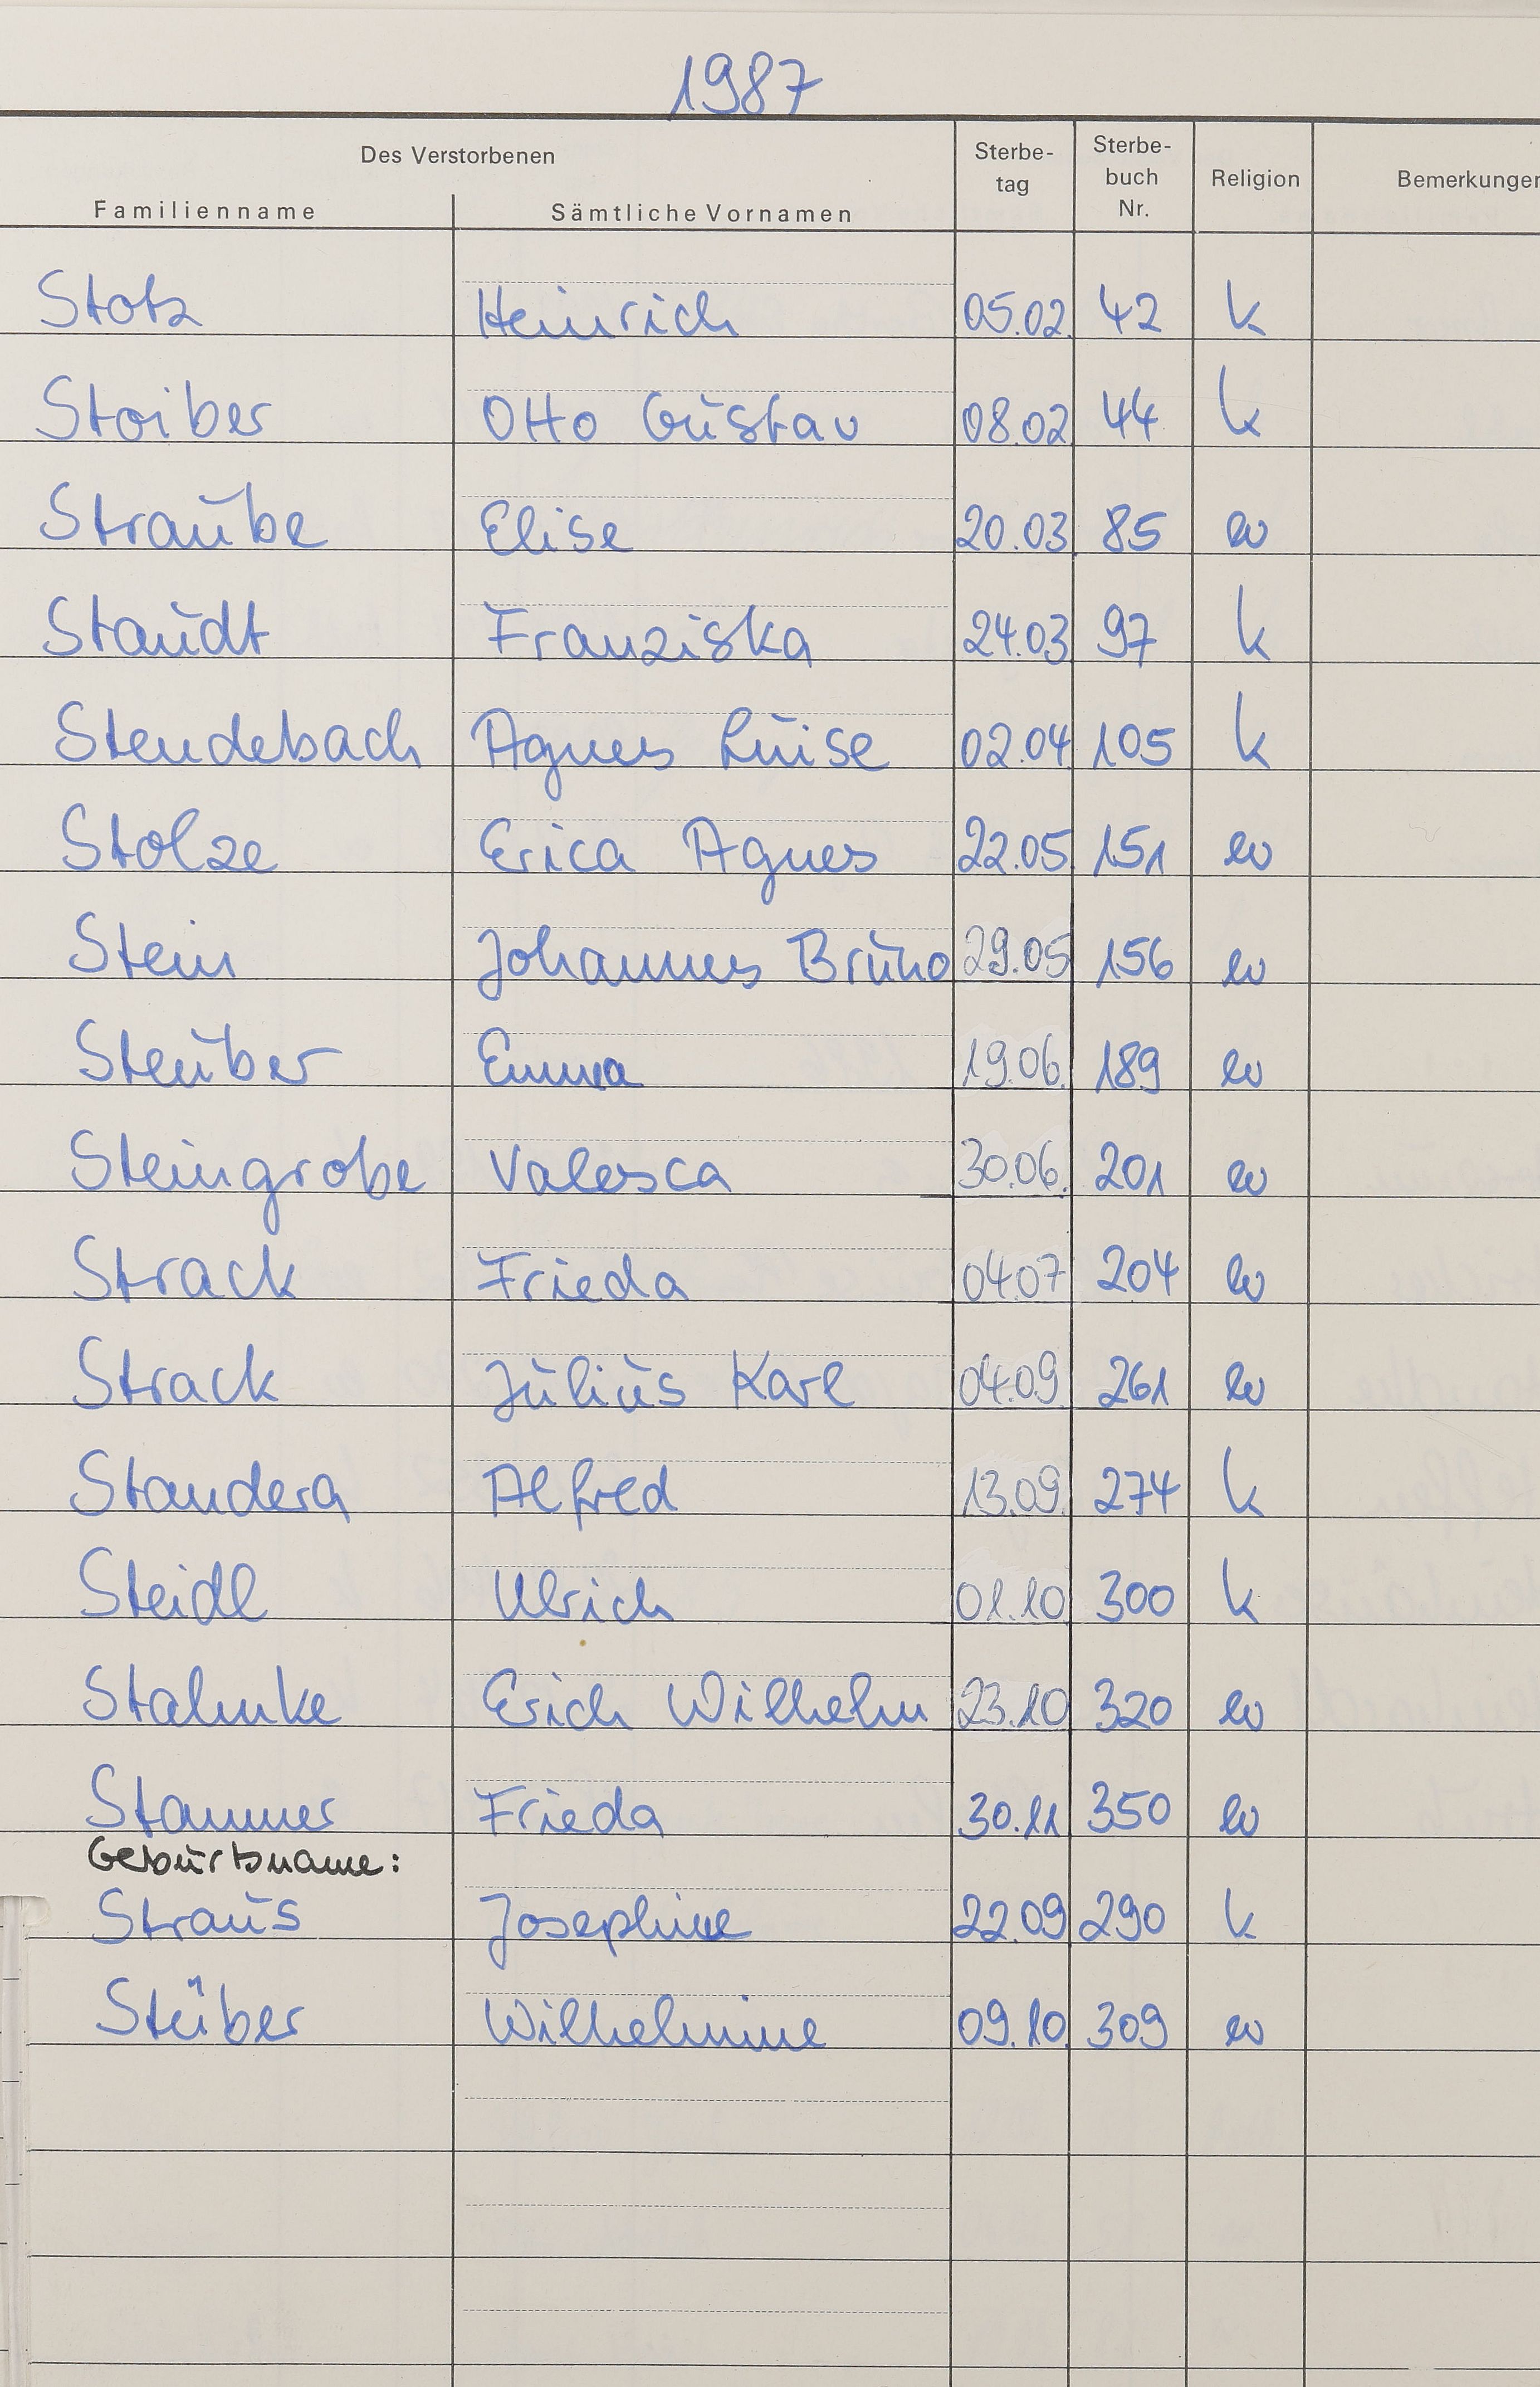 1987
Des Verstorbenen
Familienname Sämtliche Vornamen Sterbe-tag Sterbe-buch Nr. Religion Bemerkungen
Stotz Heinrich 05.02. 42 k
Stoiber Otto Gustav 08.02 44 k
Straube Elise 20.03. 85 ev
Staudt Franziska 24.03 97 k
Stendebach Agnes Luise 02.04 105 k
Stolze Erica Agnes 22.05. 151 ev
Stein Johannes Bruno 29.05 156 ev
Steuber Emma 19.06. 189 ev
Steingrobe Valesca 30.06. 201 ev
Strack Frieda 04.07 204 ev
Strack Julius Karl 04.09. 261 ev
Standera Alfred 13.09. 274 k
Steidl Ulrich 01.10 300 k
Stahnke Erich Wilhelm 23.10 320 ev
Stammer Frieda 30.11 350 ev
Geburtsname:
Straus Josephine 22.09 290 k
Stüber Wilhelmine 09.10. 309 ev